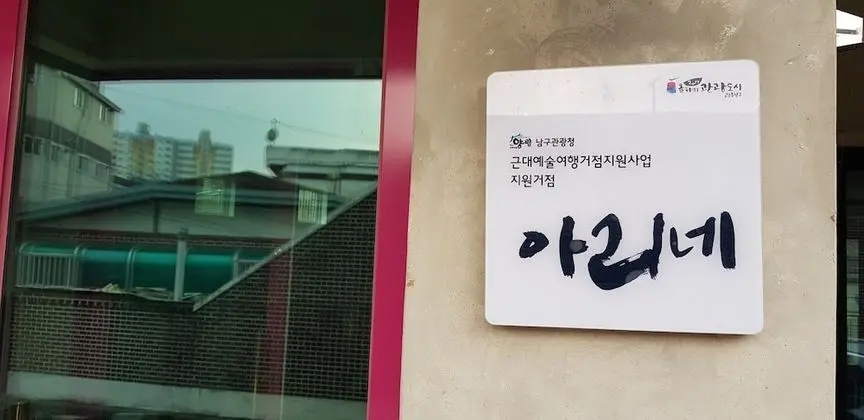 관광도시
양림 남구관광청
근대예술여행거점지원사업
지원거점
아리네